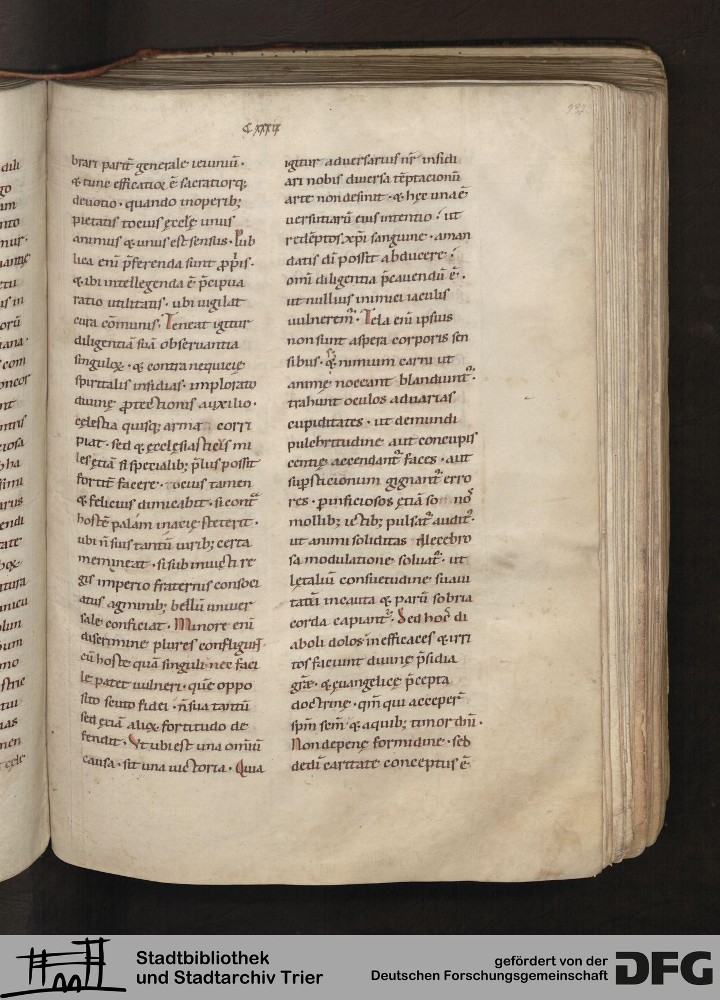 C XXXIX
brari parit̄ generale ieiuniū ·
& tunc efficatior ē sacratiorq;
deuotio · quando inoperib;
pietatis tocius ęcclę unus
animus & unus est sensus · Pub
lica eni p̄ferenda sunt p̱priis ·
& ibi intellegenda ē p̄cipua
ratio utilitatis · ubi uigilat
cura cōmunis · Teneat igitur
diligentiā suā obseruantia
singuloꝝ · & contra nequicię
spiritalis insidias · implorato
diuinę ꝓtectionis auxilio ·
cęlestia quisq; arma corri
piat · sed & ęcclęsiasticus mi
les ęcia si specialib; p̄lus possit
fortit̄ facere · tocius tamen
& felicius dimicabit · si cont̄
hostē palam in acie steterit ·
ubi n̄ suis tantū uirib; certa
men ineat · si sub inuicti re
gis imperio fraternis consoci
atus agminib; bellū uniuer
sale conficiat · Minore eni
discrimine plures confligunt
cū hoste quā singuli · nec faci
le patet uulneri · quē oppo
sito scuto fidei · n̄ sua tantū
sed ęciā alioꝝ fortitudo de
fendit · Vt ubi est una omiū
causa · sit una uictoria · Quia
igitur aduersarius nr̄ insidi
ari nobis diuersa tēptacionū
arte non desinit · & hęc una ē
uersutiarū eius intentio · ut
redēptos xp̄i sanguine · a man
datis dī possit abducere ·
omi diligentia p̄cauendū ē ·
ut nullius inimici iaculis
uulneremꝰ · Tela eni ipsius
non sunt aspera corporis sen
sibus · & nimium carni ut
animę noceant blandiunt᷑ ·
trahunt oculos ad uarias
cupiditates · ut de mundi
pulchritudine aut concupis
centię accendant᷑ faces · aut
sup̱sticionum gignant᷑ erro
res · p̱ inficiosos ęciā so nō
mollib; ictib; pulsat᷑ audit᷑ ·
ut animi soliditas illecebro
sa modulatione soluat᷑ · ut
lętaliū consuetudine suaui
tatū incauta & parū sobria
corda capiant᷑ · Sed hos di
aboli dolos inefficaces & irri
tos faciunt diuinę p̄sidia
grę · & ęuangelicę p̄cepta
doctrinę · qm̄ qui acceper̄
spm̄ scm̄ · & a quib; timor dn̄i ·
Non de penę formidine · sed
de dei caritate conceptus ē
Stadtbibliothek
und Stadtarchiv Trier
gefördert von der
Deutschen Forschungsgemeinschaft
DFG